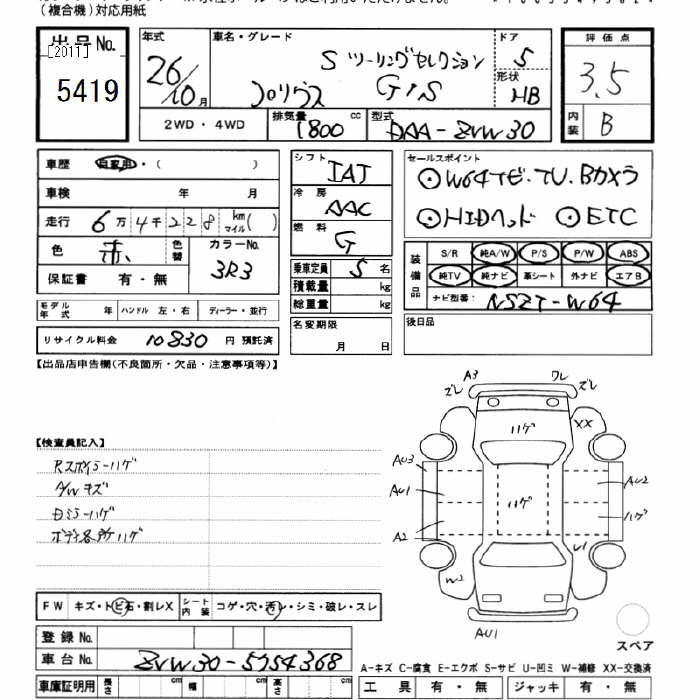 (複合機)対応用紙
出品No.
[201T]
5419
年式 26/10月
車名・グレード S ツーリングセレクション G's
ドア 5
形状 HB
2WD・4WD
排気量 1800 cc
型式 DAA-ZVW30
評価点 3.5
内装 B
車歴 自家用・( )
車検 年 月
走行 6万4千228 km マイル( )
色 赤 色替
カラーNo. 3R3
保証書 有・無
モデル年式 年 ハンドル 左・右 ディーラー・並行
リサイクル料金 10830 円 預託済
シフト IAT
冷房 AAC
燃料 G
乗車定員 5 名
積載量 kg
総重量 kg
名変期限 月 日
セールスポイント
W64ナビ.TV.Bカメラ
HIDヘッド ETC
装備品
S/R 純A/W P/S P/W ABS
純TV 純ナビ 革シート 外ナビ エアB
ナビ型番: NSZT-W64
後日品
【出品店申告欄(不良箇所・欠品・注意事項等)】
【検査員記入】
Rスポイラーハゲ
A/Wキズ
日ミラーハゲ
ボディ各所ハゲ
A3 ワレ
ズレ ズレ
ハゲ XX
AU3
AU1 ハゲ AU2
A2 ハゲ
W2 U1
AU1
スペア
FW キズ・トビ石・割レX
シート内装 コゲ・穴・汚レ・シミ・破レ・スレ
登録No.
車台No. ZVW30-5754368
車庫証明用 長さ cm 幅 cm 高さ cm
A-キズ C-腐食 E-エクボ S-サビ U-凹ミ W-補修 XX-交換済
工具 有・無 ジャッキ 有・無